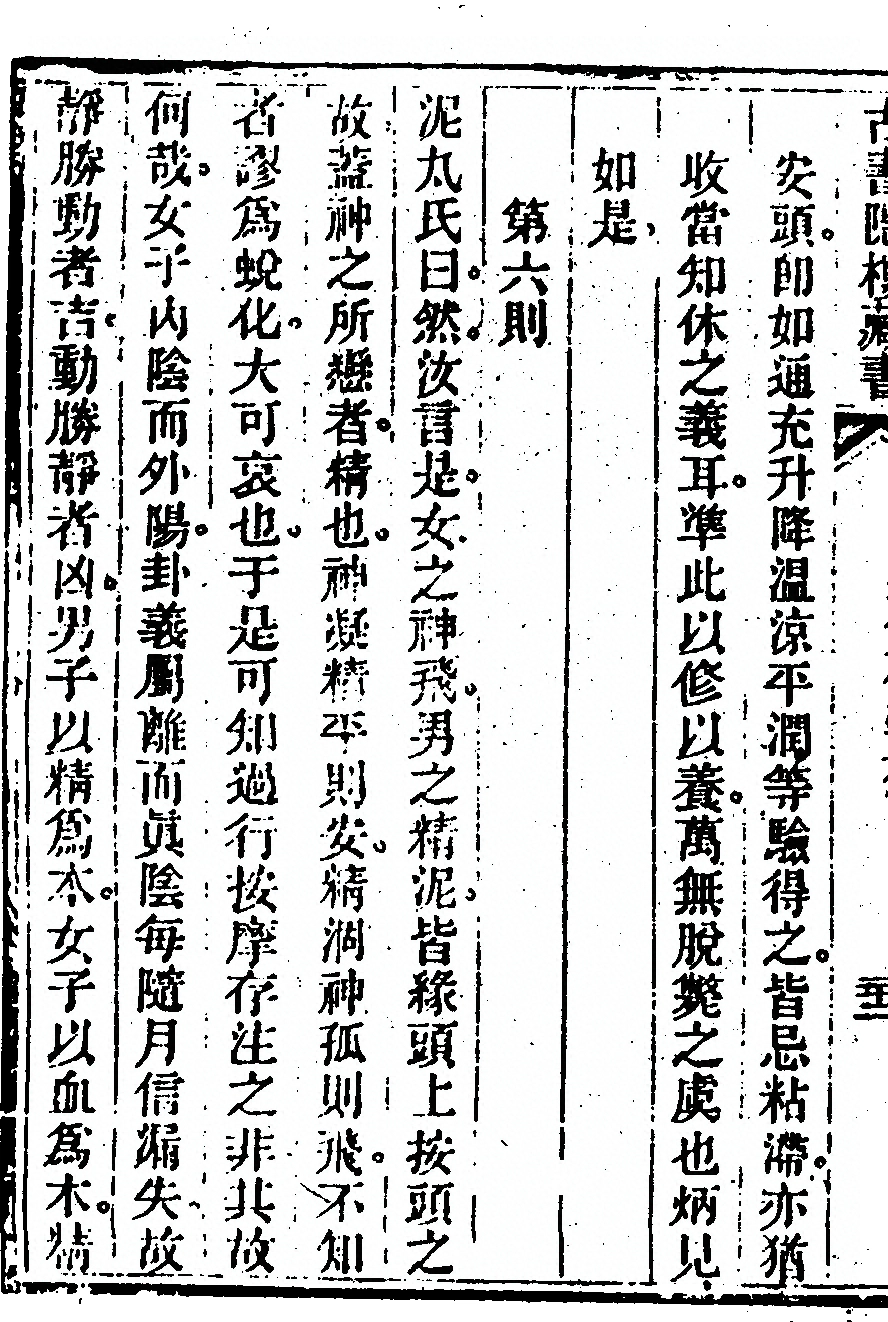 古書隱樓藏書
安頭。卽如通充升降溫涼平潤等驗得之。皆忌粘滯。亦猶
收當知休之義耳。準此以修以養。萬無脫斃之虞也炳見
如是、
第六則
泥丸氏曰。然。汝言是。女之神飛。男之精泥。皆緣頭上按頭之
故蓋神之所戀者。精也。神凝精平則安。精涸神孤則飛。不知
者謬爲蛻化。大可哀也。于是可知過行按摩存注之非其故
何哉。女子內陰而外陽。卦義屬離而眞陰每隨月信漏失故
靜勝動者吉。動勝靜者凶。男子以精爲本。女子以血爲本。精